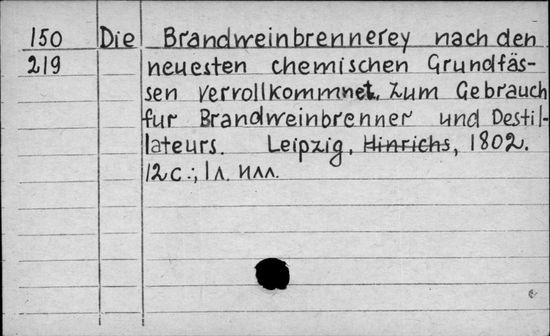 150 Die Brandweinbrennerey nach den
219 neuesten chemischen Grundfäs-
sen vervollkommnet. Zum Gebrauch
fur Brandweinbrenner und Destil-
lateurs. Leipzig, Hinrichs, 1802.
12 с.; 1 л. илл.